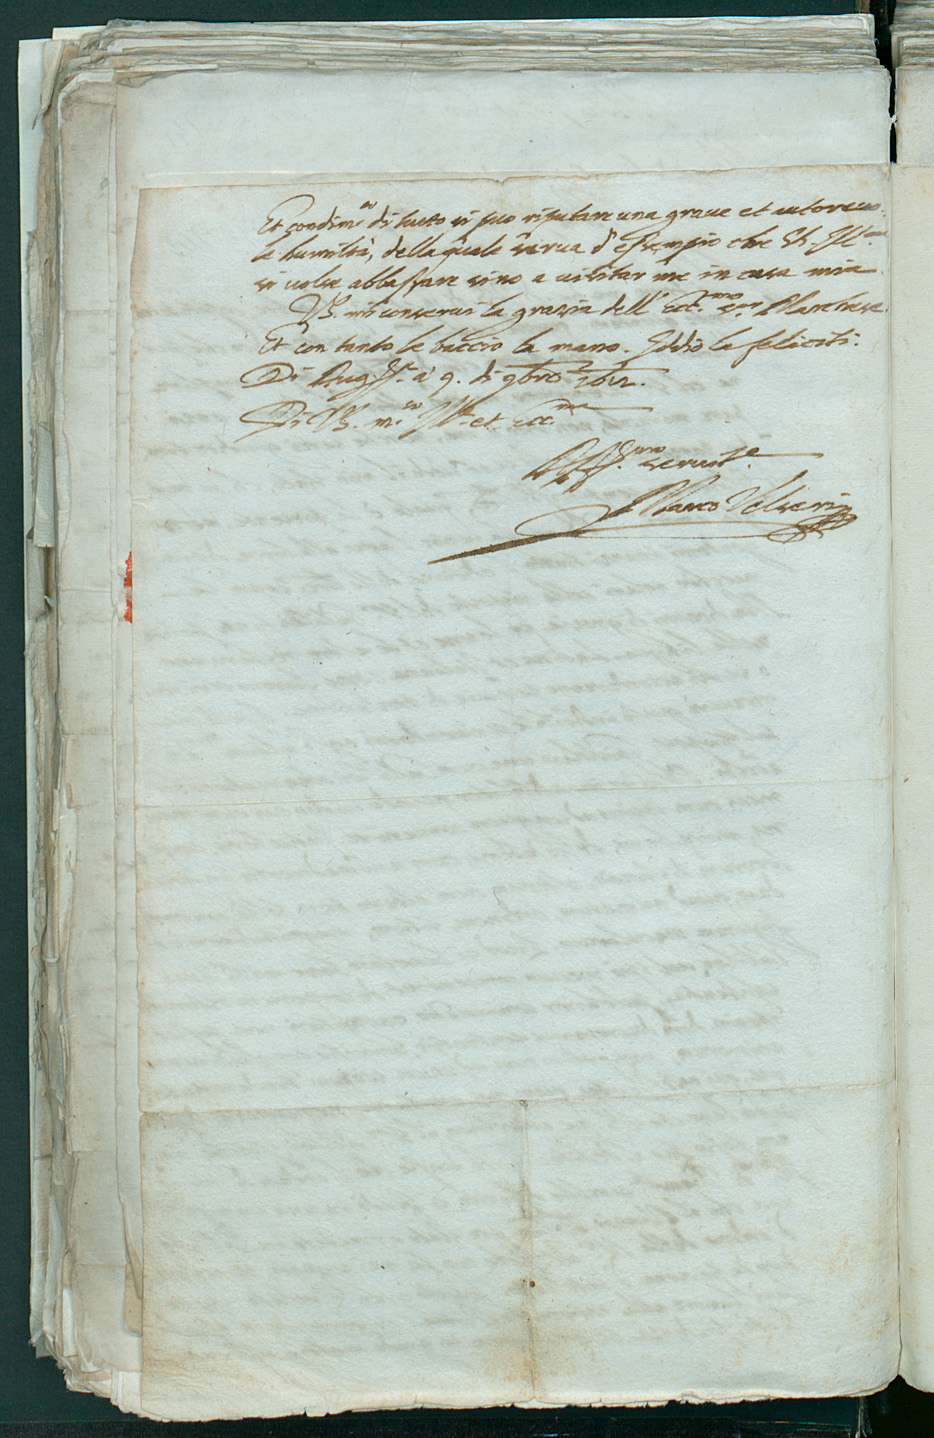 Et condim.to di tutto si può riputare una graue et autoreuo-
le humiltà, della quale serua d'essempio che V.S. Ill.ma
si uolse abbassare sino a uisitar me in casa mia.
V.S. mi conserui la grazia dell' Ecc.mo s.or Marchese.
Et con tanto le baccio la mano. Iddio la feliciti.
Di Aug.ta à 9. di 9bre 1612.
Di V.S. m.to Ill.re et Ecc.ma
Aff.mo seruit.e
Marco Velseri